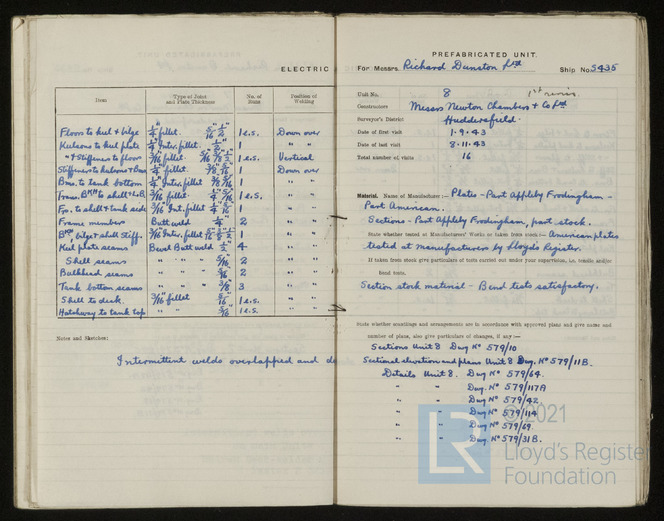 ELECTRIC
Item
Type of Joint and Plate Thickness
No. of Runs
Position of Welding
Floors to keel & bilge 1/4" fillet. 5/16" 1/2" 1 e.s. Down over
Keelsons to keel plate 1/4" Inter. fillet. 1/2" 1 " "
" & Stiffeners to floors 3/16" fillet. 5/16 3/8 1/2 1 e.s. Vertical
Stiffeners to keelsons & Bms 1/4" fillet. 3/8" 5/16 1 Down over
Bms. to tank bottom 1/4" Inter. fillet 3/8 5/16 1 " "
Trans. BKHD to shell & L.B. 3/16" fillet. 1/4" 5/16 1 e.s. " "
Frs. to shell & tank side 3/16" Int. fillet 1/4 5/16 1 " "
Frame member Butt weld 1/4" 2 " "
BKHD bilge & shell Stiff. 3/16" Inter. fillet 5/16 1/2 1 " "
Keel plate seams Bevel Butt weld 1/2" 4 " "
Shell seams " " " 5/16" 2 " "
Bulkhead seams " " " 5/16 2 " "
Tank bottom seams " " " 3/8 3 " "
Shell to deck. 3/16" fillet 5/16 1 e.s. " "
Hatchway to tank top " " 3/8 1 e.s. " "
Notes and Sketches:
Intermittent welds overlapped and
PREFABRICATED UNIT.
For Messrs. Richard Dunston Ltd Ship No. S435
Unit No. 8
Constructors Messrs Newton Chambers & Co Ltd
Surveyor's District Huddersfield.
Date of first visit 1.9.43
Date of last visit 8.11.43
Total number of visits 16
Material. Name of Manufacturer:— Plates - Part Appleby Frodingham -
Part American.
Sections - Part Appleby Frodingham, part stock.
State whether tested at Manufacturers' Works or taken from stock:— American plates
tested at manufacturers by Lloyds Register.
If taken from stock give particulars of tests carried out under your supervision, i.e. tensile and/or
bend tests.
Section stock material - Bend tests satisfactory.
State whether scantlings and arrangements are in accordance with approved plans and give name and
number of plans, also give particulars of changes, if any:—
Sections Unit 8 Dwg No 579/10
Sectional elevation and plans Unit 8 Dwg. No 579/11B.
Details Unit 8. Dwg No 579/64.
" " Dwg No 579/117A
" " Dwg No 579/42
" " Dwg No 579/114
" " Dwg No 579/69.
" " Dwg No 579/31B.
LR
©2021
Lloyd's Register
Foundation